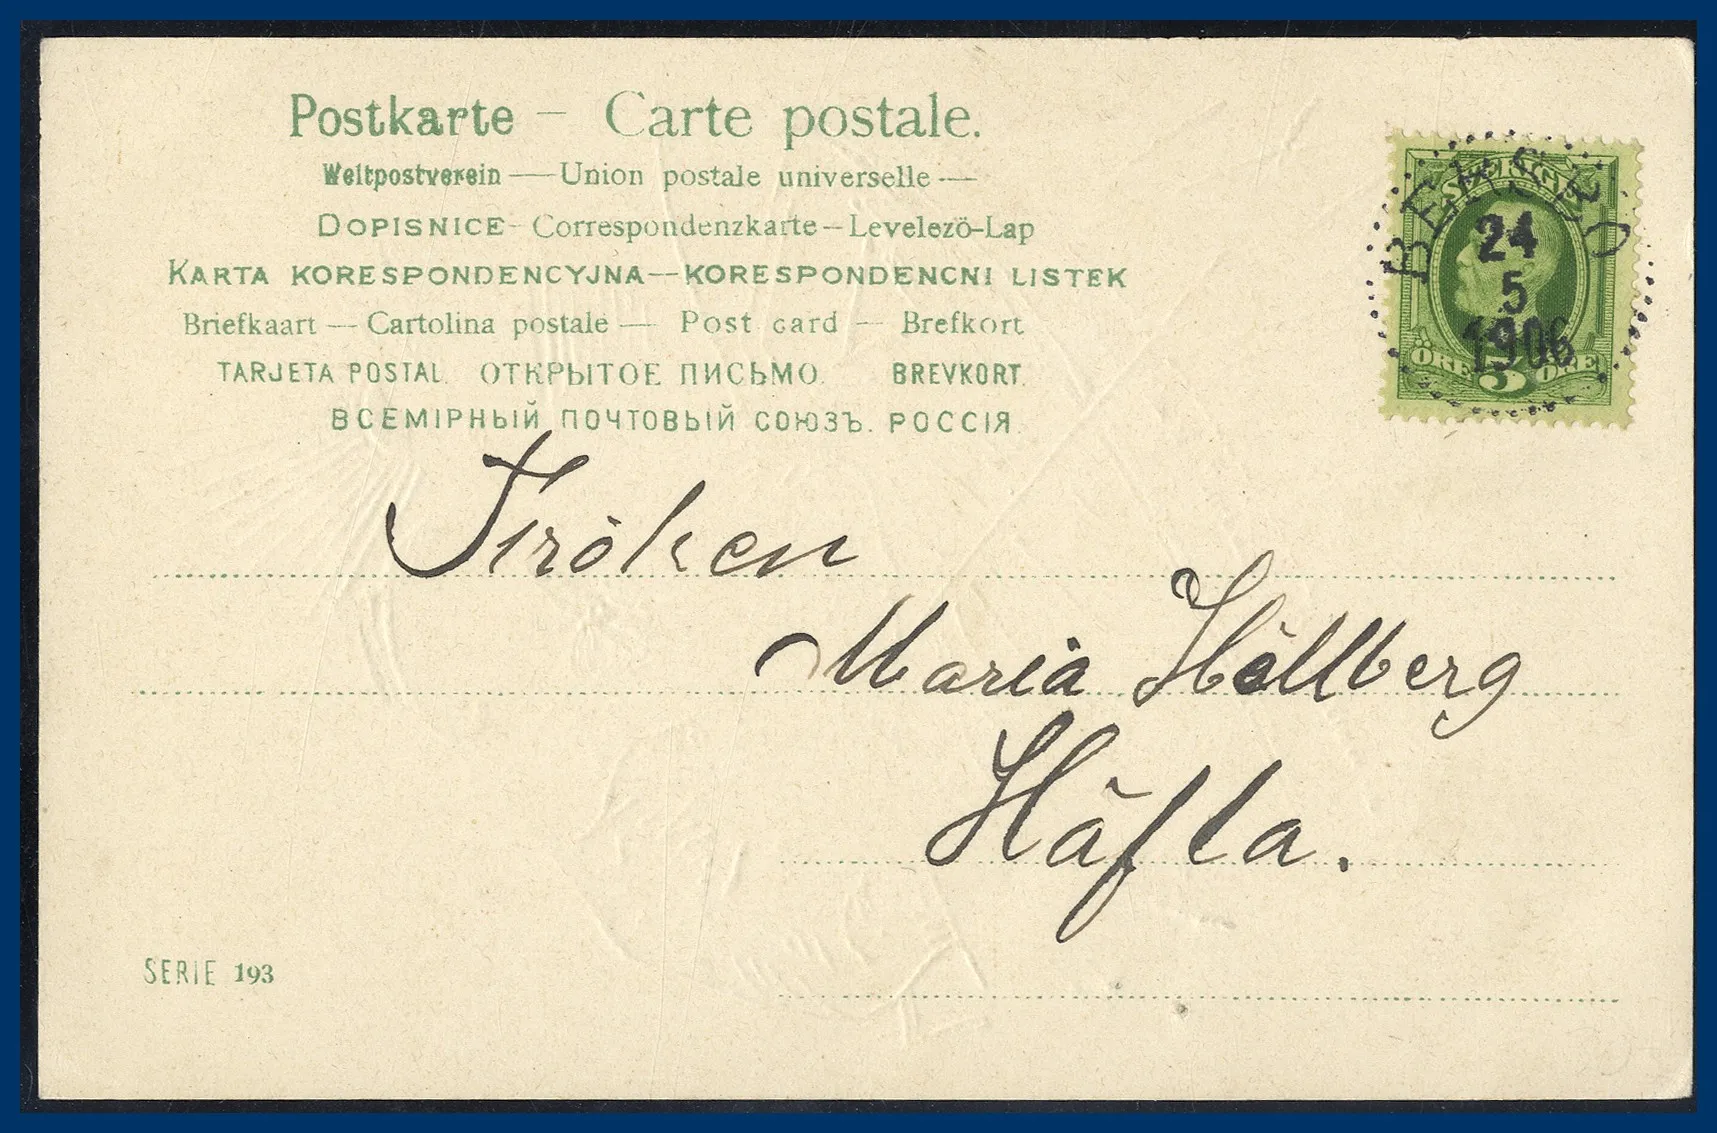 Postkarte – Carte postale.
Weltpostverein — Union postale universelle —
DOPISNICE – Correspondenzkarte – Levelező-Lap
KARTA KORESPONDENCYJNA — KORESPONDENCNI LISTEK
Briefkaart — Cartolina postale — Post card — Brefkort
TARJETA POSTAL. ОТКРЫТОЕ ПИСЬМО. BREVKORT.
ВСЕМІРНЫЙ ПОЧТОВЫЙ СОЮЗЪ. РОССІЯ.
24
5
1906
ÖRE 5 ÖRE
Fröken
Maria Hällberg
Häfla.
SERIE 193